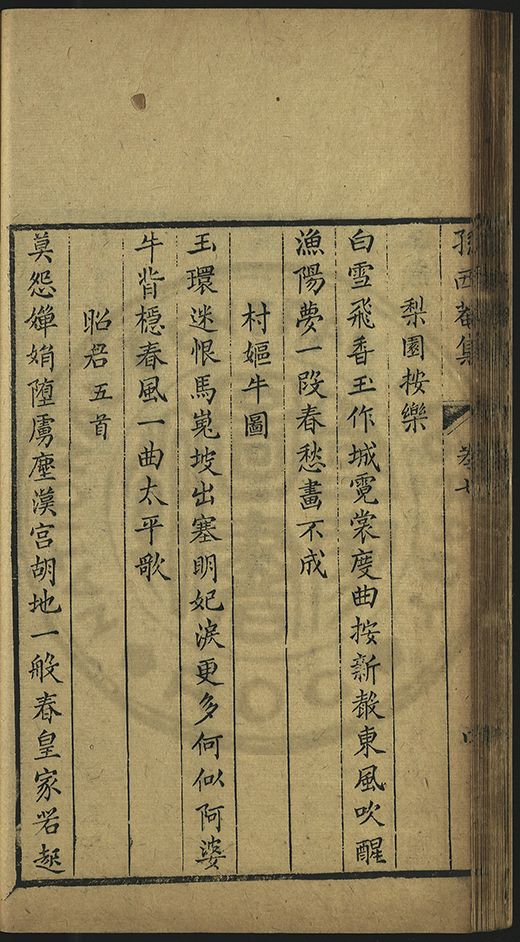 孫西菴集 卷七
梨園按樂
白雪飛香玉作城霓裳度曲按新聲東風吹醒
漁陽夢一段春愁畫不成
村嫗牛圖
玉環迷恨馬嵬坡出塞明妃淚更多何似阿婆
牛背穩春風一曲太平歌
昭君五首
莫怨嬋娟墮虜塵漢宮胡地一般春皇家若起